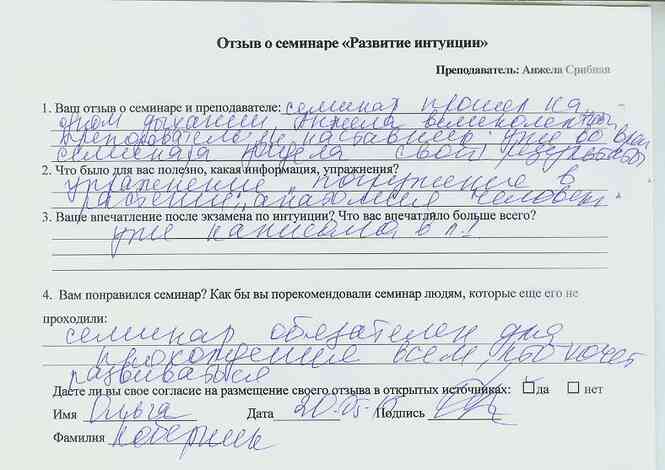 Отзыв о семинаре «Развитие интуиции»
Преподаватель: Анжела Срибная
1. Ваш отзыв о семинаре и преподавателе: семинар прошел на
одном дыхании Анжела великолепный
преподаватель и наставник. уже во время
семинара видела свои результаты
2. Что было для вас полезно, какая информация, упражнения?
упражнение „погружение в
растении,, анахомея человек.
3. Ваше впечатление после экзамена по интуиции? Что вас впечатлило больше всего?
уже написала в п.1
4. Вам понравился семинар? Как бы вы порекомендовали семинар людям, которые еще его не
проходили:
семинар обязателен для
прохождения всем, кто хочет
развиваться
Даете ли вы свое согласие на размещение своего отзыва в открытых источниках: да нет
Имя Ольга Дата 20.05. Подпись
Фамилия